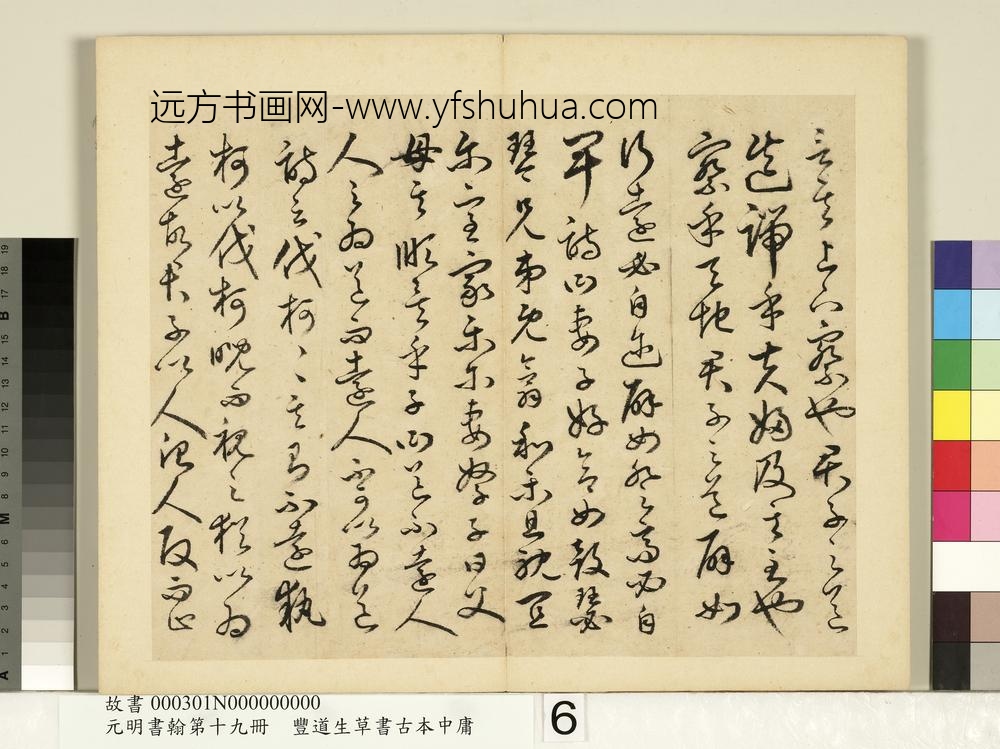 远方书画网-www.yfshuhua.com
言其上下察也君子之道
造端乎夫婦及其至也
察乎天地君子之道辟如
行遠必自邇辟如登高必自
卑詩曰妻子好合如鼓瑟
琴兄弟既翕和樂且耽宜
爾室家樂爾妻孥子曰父
母其順矣乎子曰道不遠人
人之為道而遠人不可以為道
詩云伐柯〻〻其則不遠執
柯以伐柯睨而視之猶以為
遠故君子以人治人改而止
故書 000301N000000000
元明書翰第十九冊 豐道生草書古本中庸
6
A 1 2 3 4 5 6 M 8 9 10 11 12 13 14 15 B 17 18 19